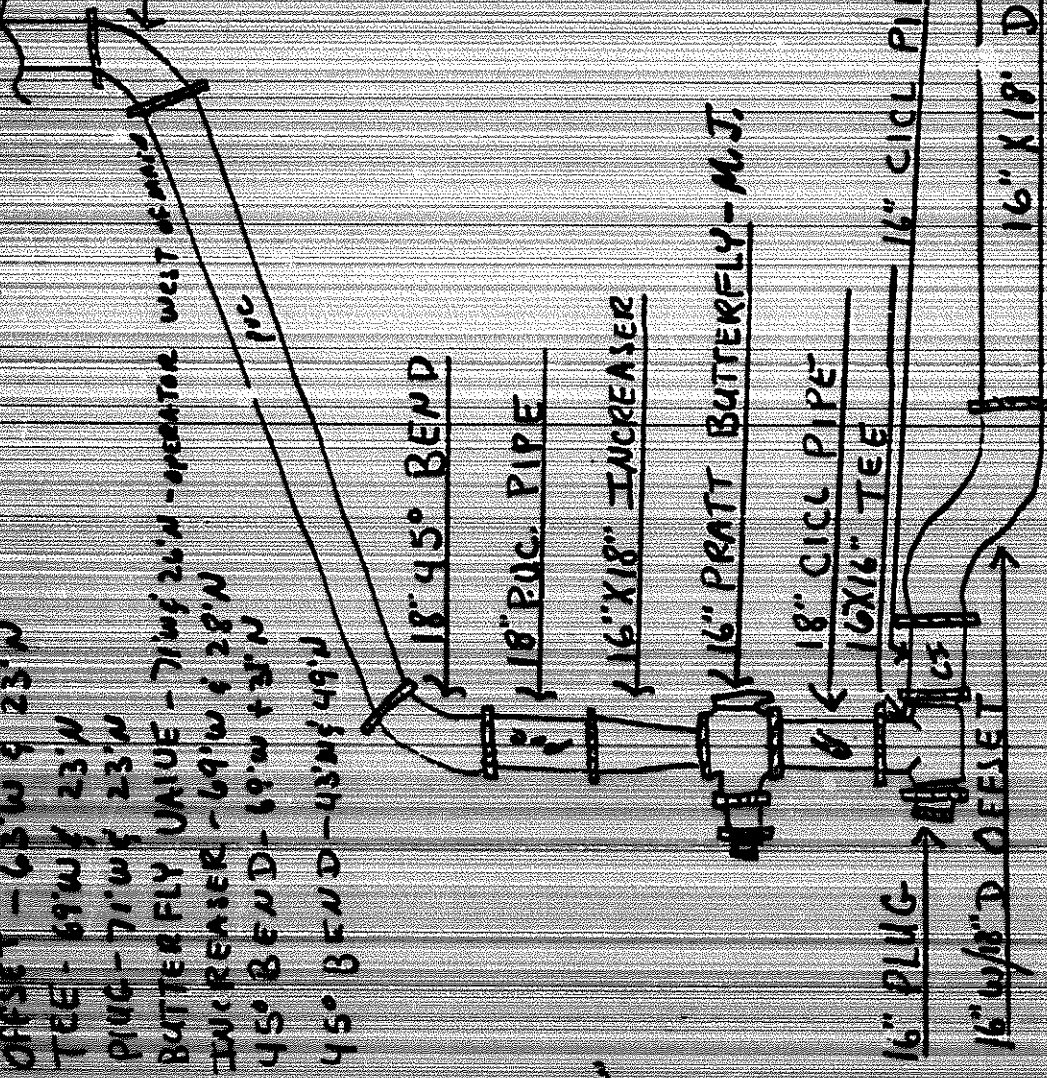 OFFSET - 63'W & 23'N
TEE - 69'W & 23'N
PLUG - 71'W & 23'N
BUTTERFLY VALVE - 71'W & 26'N - OPERATOR WEST OF MAIN
INCREASER - 69'W & 28'N
45° BEND - 69'W + 31'N
45° BEND - 43'W & 49'N
PVC
18" 45° BEND
18" P.V.C. PIPE
16" X 18" INCREASER
16" PRATT BUTTERFLY - M.J.
18" CICL PIPE
16X16" TEE
16" CICL PI
CI
16" X 18" D
16" PLUG
16" W/18" D OFFSET